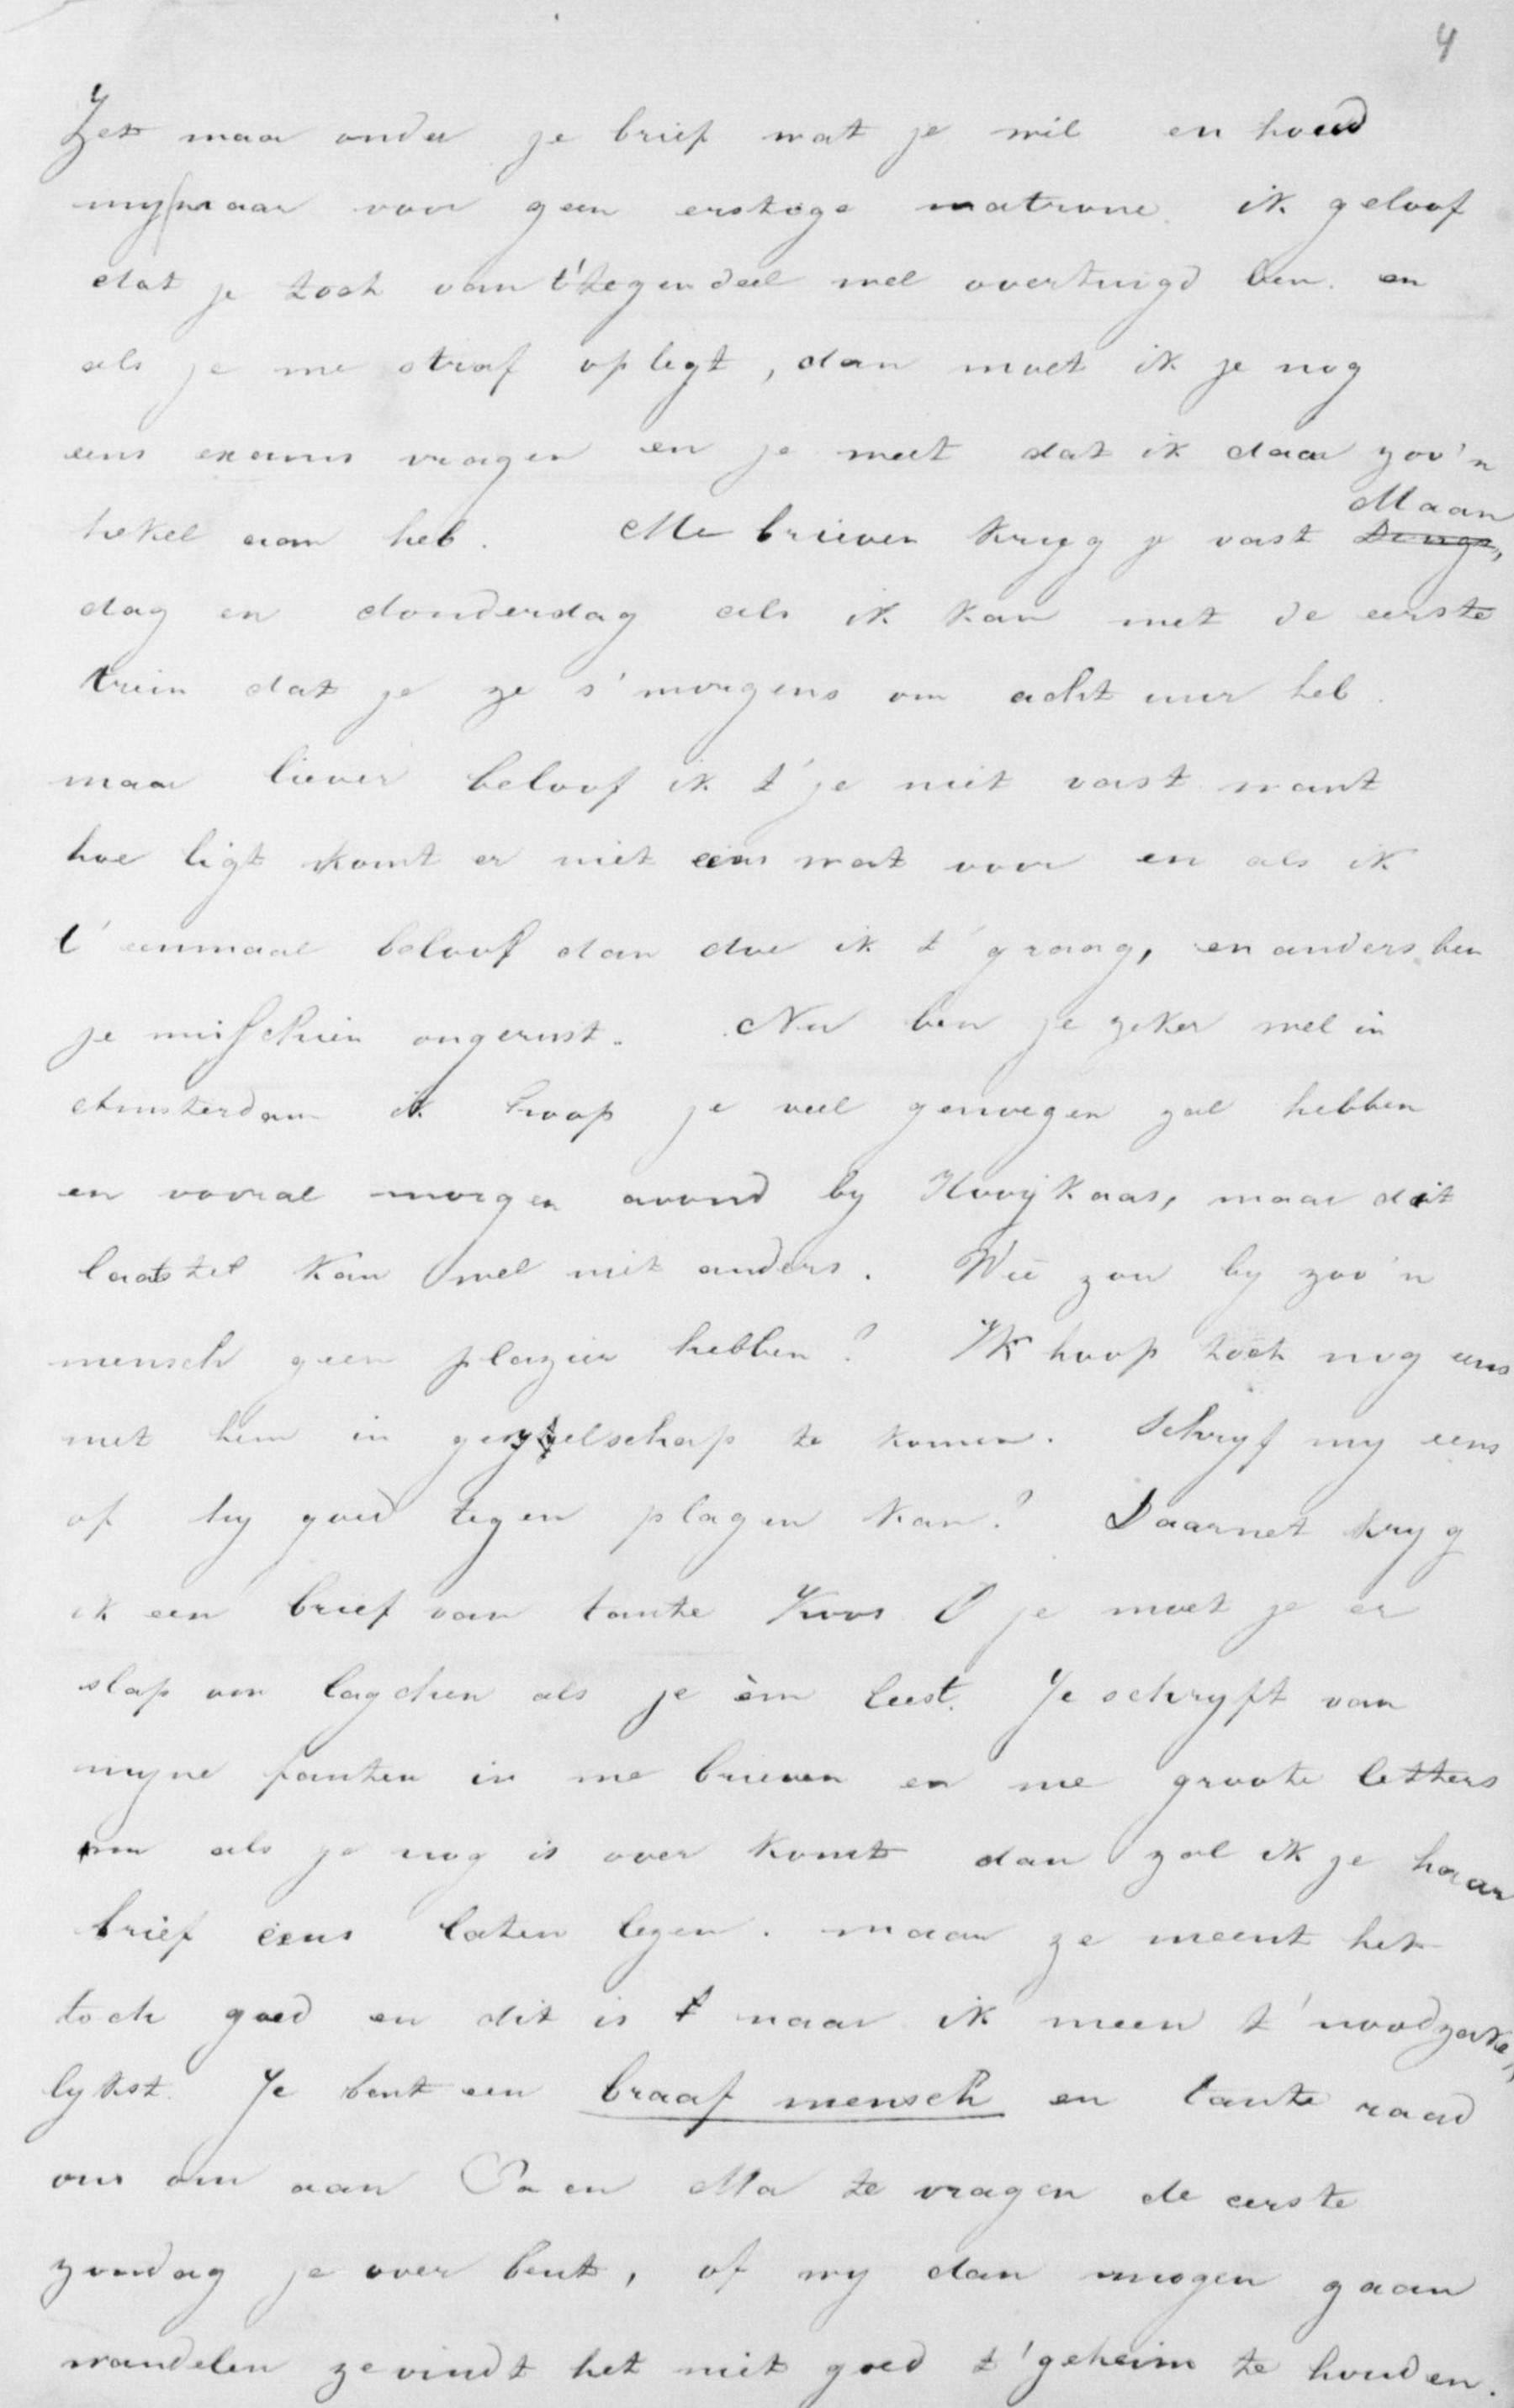 4
Zet maar onder je brief wat je wil en houd
my maar voor geen erstege matrone. ik geloof
dat je toch van t'tegendeel wel overtuigd ben. en
als je me straf oplegt, dan moet ik je nog
eens excuus vragen en je weet dat ik daar zoo'n
hekel aan heb. Me brieven kryg je vast Dings, Maan
dag en donderdag als ik kan met de eerste
trein dat je ze s'morgens om acht uur heb.
maar liever beloof ik t'je niet vast want
hoe ligt komt er niet eens wat voor en als ik
t'eenmaal beloof dan doe ik t'graag, en anders ben
je misschien ongerust. Nu ben je zeker wel in
Amsterdam ik hoop je veel genoegen zal hebben
en vooral morgen avond by Kooykaas, maar dit
laatste kan wel niet anders. Wie zou by zoo'n
mensch geen plazier hebben? Ik hoop toch nog eens
met hem in gezelschap te komen. Schryf my eens
of hy goed tegen plagen kan? Daarnet kryg
ik een brief van tante Koos O je moet je er
slap om lagchen als je èm leest. Je schryft van
myne fouten in me brieven en me groote letters
nu als je nog is over komt dan zal ik je haar
brief eens laten lezen. maar ze meent het
toch goed en dit is t naar ik meen t'noodzake,
lykst. Je bent een braaf mensch en tante raad
ons om aan Pa en Ma te vragen de eerste
zondag je over bent, of wy dan mogen gaan
wandelen ze vindt het niet goed t'geheim te houden.